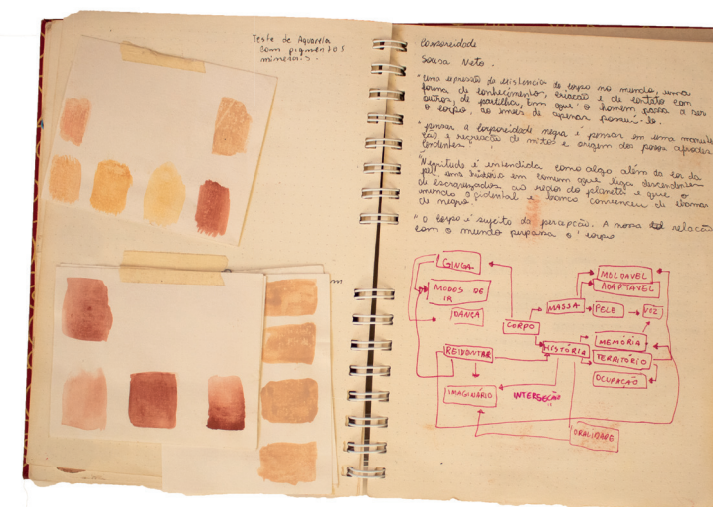 Teste de Aquarela
com pigmentos
minerais.
Corporeidade
Sousa Neto.
"uma expressão da existência do corpo no mundo, uma
forma de conhecimento, criação e de contato com
outros, de partilha, em que o homem passa a ser
o corpo, ao invés de apenas possuí-lo.
"pensar a corporeidade negra é pensar em uma
e recriação de mitos e origem dos povos
"Negritude é entendida como algo além da cor da
pele, uma história em comum que liga descendentes
de escravizados ao redor do planeta e que o
mundo ocidental e branco convenceu de chamar
de negro."
"O corpo é sujeito da percepção. A nossa relação
com o mundo perpassa o corpo
GINGA
MODOS DE
IR
DANÇA
CORPO
MASSA
MOLDÁVEL
ADAPTÁVEL
PELE
VOZ
HISTÓRIA
MEMÓRIA
TERRITÓRIO
OCUPAÇÃO
REINVENTAR
IMAGINÁRIO
INTERSEÇÃO
ORALIDADE